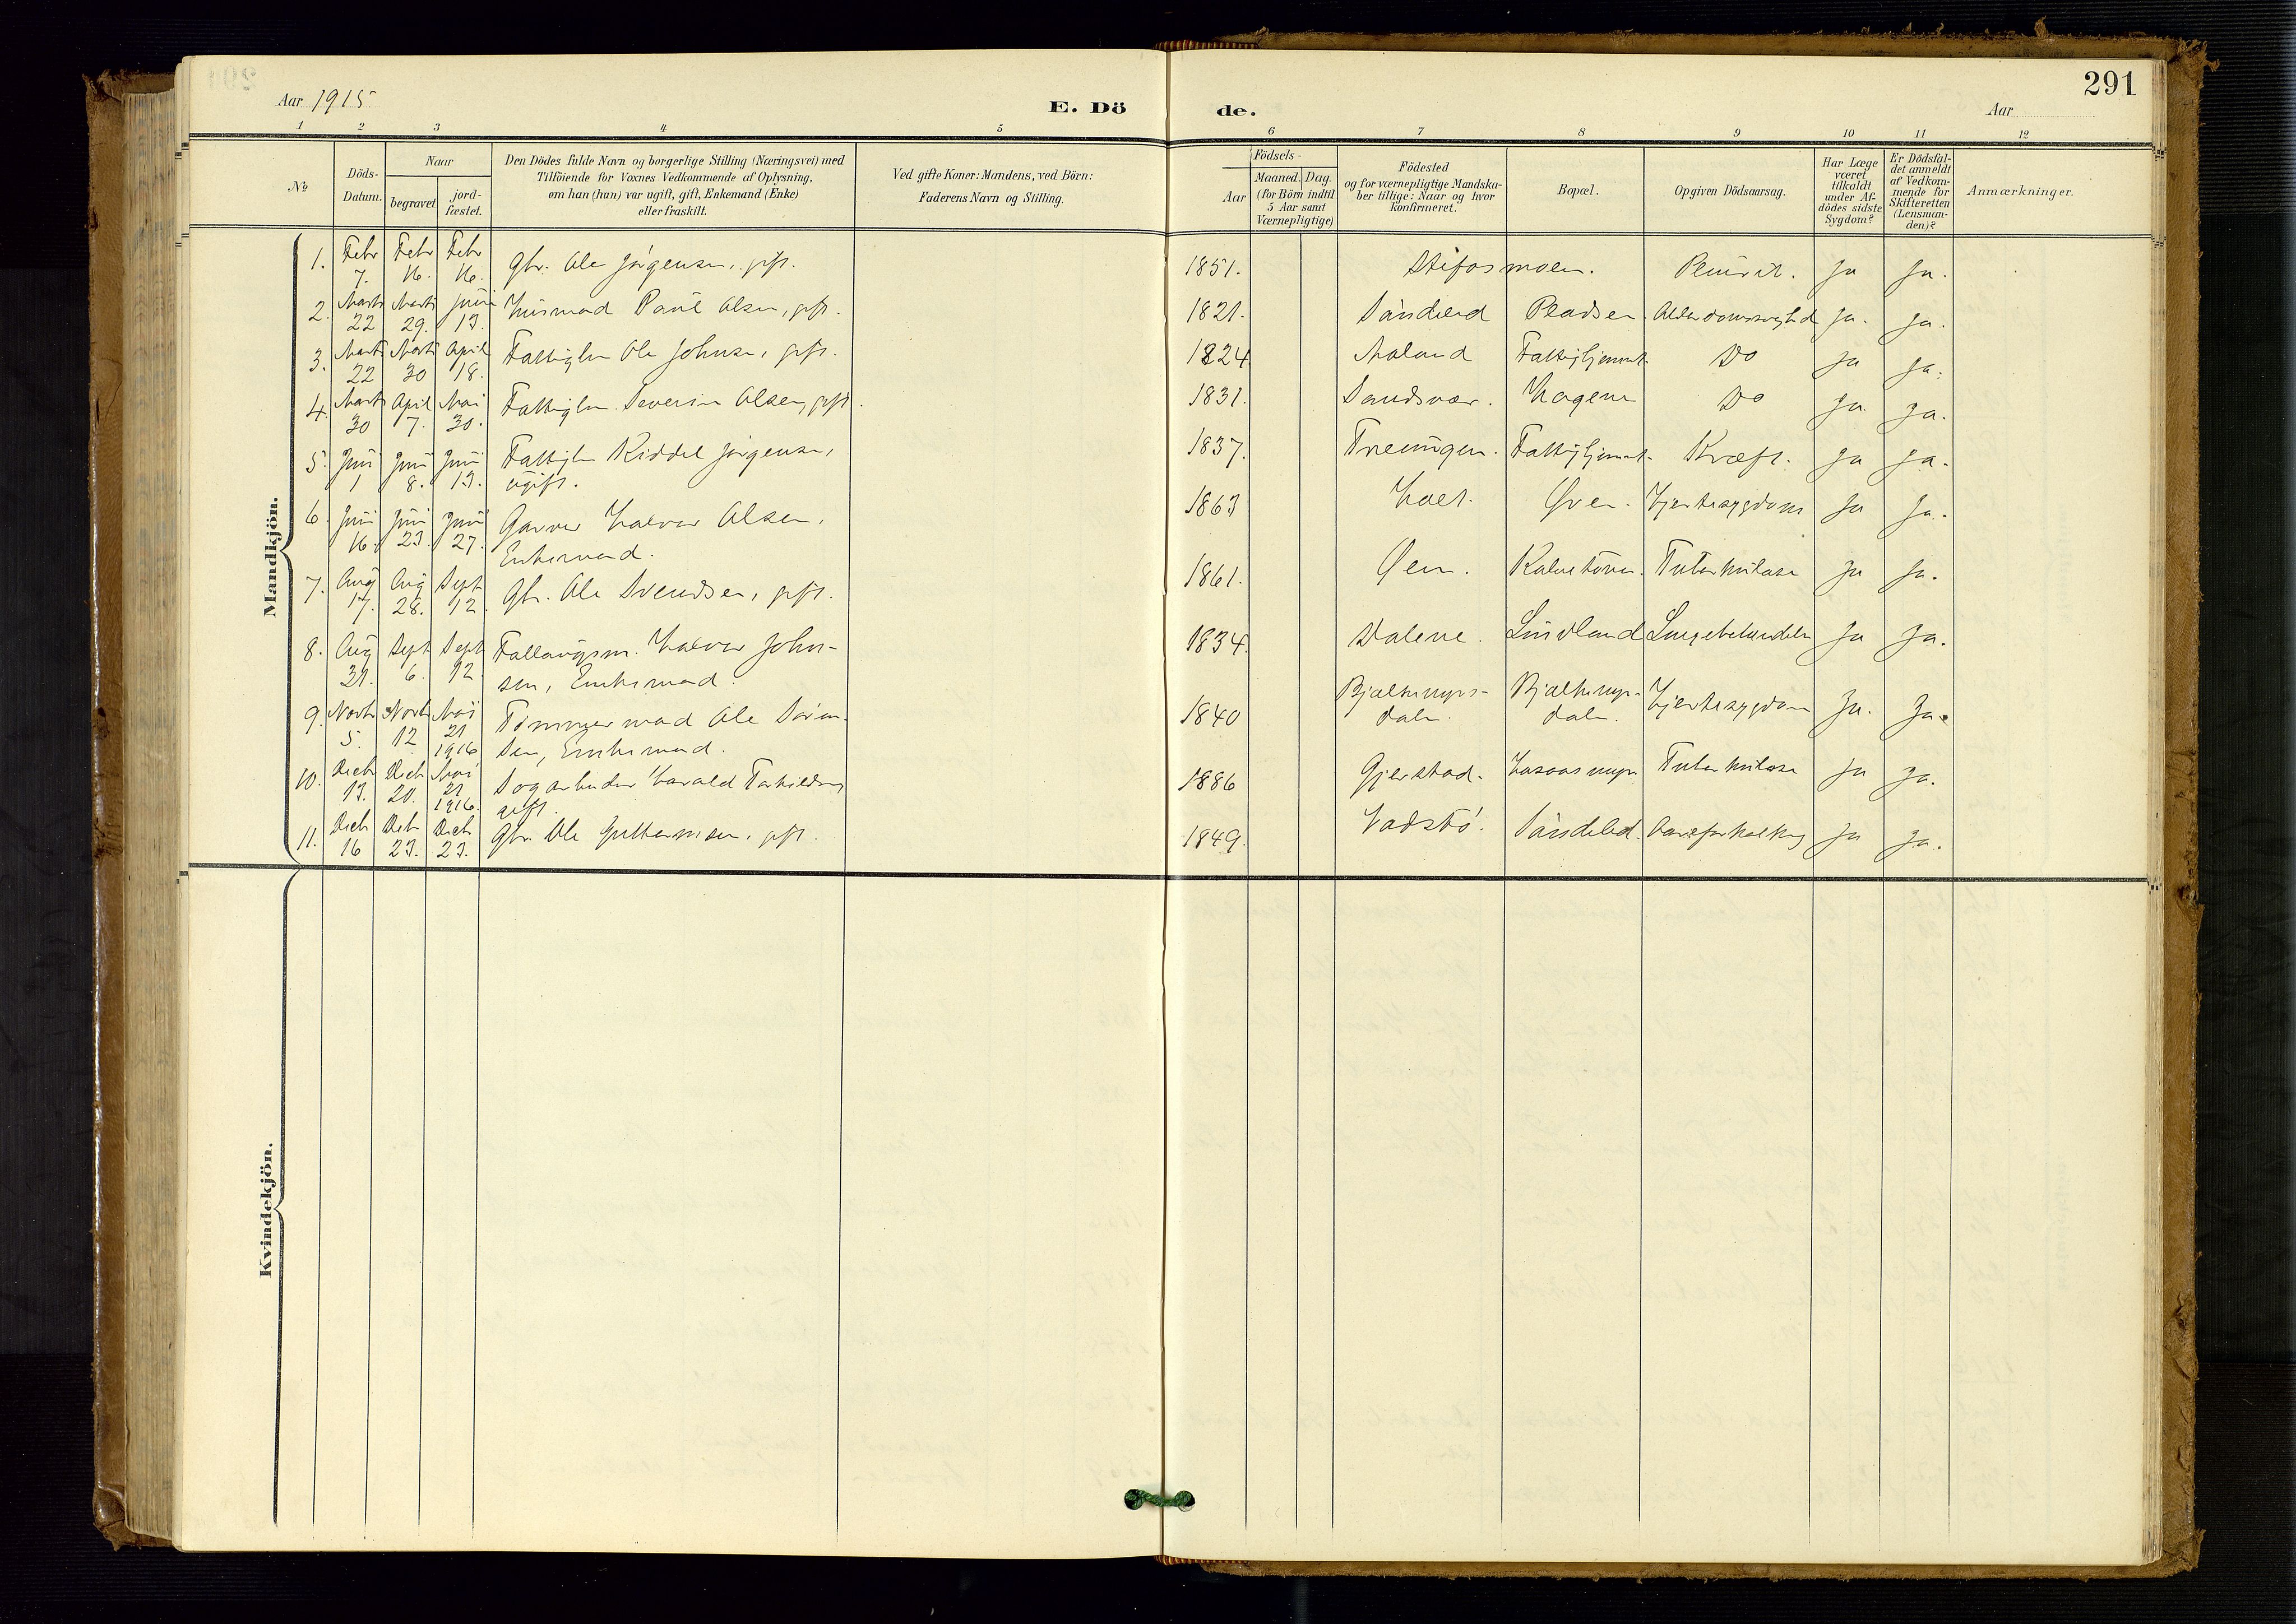 291
Aar 1915
E. Dö
de.
Aar
1 2 3 4 5 6 7 8 9 10 11 12
№
Döds-
Datum.
Naar
begravet
jord-
fæstet.
Den Dödes fulde Navn og borgerlige Stilling (Næringsvei) med
Tilföiende for Voxnes Vedkommende af Oplysning,
om han (hun) var ugift, gift, Enkemand (Enke)
eller fraskilt.
Ved gifte Koner: Mandens, ved Börn:
Faderens Navn og Stilling.
Födsels-
Aar
Maaned. Dag.
(for Börn indtil
5 Aar samt
Værnepligtige)
Födested
og for værnepligtige Mandska-
ber tillige: Naar og hvor
konfirmeret.
Bopæl.
Opgiven Dödsaarsag.
Har Læge
været
tilkaldt
under Af-
dödes sidste
Sygdom?
Er Dödsfal-
det anmeldt
af Vedkom-
mende for
Skifteretten
(Lensman-
den)?
Anmærkninger.
Mandkjön.
1. Febr 7. Febr 16. Febr 16. Gbr. Ole Jörgensen, gift. 1851. Pleurit. Ja Ja.
2. Marts 22 Marts 29. Juni 13. Husmand Paul Olsen, gift. 1821. Söndeled Pladsen. Alderdomssvaghed Ja. Ja.
3. Marts 22 Marts 30 April 18. Fattiglm Ole Johnsen, gift. 1824. Moland Fattighjemmet. Do Ja Ja.
4. Marts 30 April 7. Mai 30. Fattiglm. Severin Olsen, gift. 1831. Sandsvær. Hagene Do Ja. Ja.
5. Juni 1 Juni 8. Juni 13. Fattiglm Kiddel Jörgensen,
ugift. 1837. Treungen. Fattighjemmet. Kræft. Ja Ja.
6. Juni 16. Juni 23. Juni 27. Garver Halvor Olsen,
Enkemand. 1863 Holt. Hjertesygdom Ja Ja.
7. Aug 17. Aug 28. Sept 12. Gbr. Ole Svendsen, gift. 1861. Öen. Tuberkulose Ja Ja.
8. Aug 31. Sept 6. Sept 12. Halvor John-
sen, Enkemand. 1834. Dalene. Lindland Lungebetændelse Ja Ja.
9. Novbr 5. Novbr 12 Mai 21 1916 Tömmermand Ole Sören-
sen, Enkemand. 1840 dalen. dalen. Hjertesygdom Ja. Ja.
10. Decb 13. Decb 20. Mai 21 1916. Harald Torkildsen
gift. 1886 Gjerstad. Tuberkulose Ja Ja.
11. Decb 16 Decb 23. Decb 23. Gbr. Ole Guttormsen, gift. 1849. Vadstö. Söndeled. Aareforkalkng Ja Ja.
Kvindekjön.